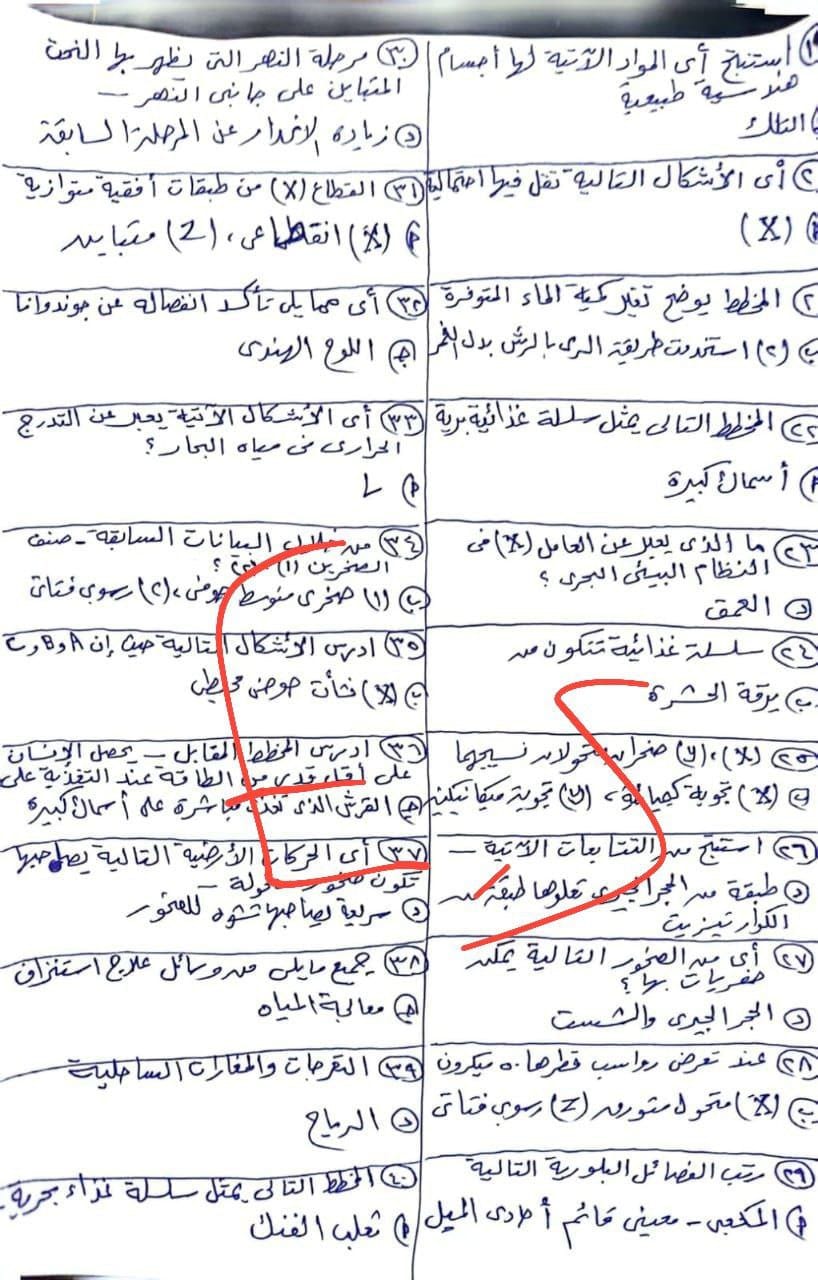 استنتج أى المواد الآتية لها أجسام
هندسية طبيعية
التلك
أى الأشكال التالية تقل فيها احتمالية
(X)
المخطط يوضح تغير كمية الماء المتوفرة
ب (٢) استخدمت طريقة الرى بالرش بدل الغمر
٢٢ المخطط التالى يمثل سلسلة غذائية برية
أ أسماك كبيرة
٢٣ ما الذى يعبر عن العامل (X) فى
النظام البيئى البحرى ؟
د العمق
٢٤ سلسلة غذائية تتكون من
ب يرقة الحشرة
٢٥ (X)، (y) صخران متحولان نسيجهما
(X) تجوية كيميائية، (y) تجوية ميكانيكية
٢٦ استنتج من التتابعات الآتية –
د طبقة من الحجر الجيرى تعلوها طبقة من
الكوارتيزيت
٢٧ أى من الصخور التالية يمكن
حفريات بها ؟
د الحجر الجيرى والشست
٢٨ عند تعرض رواسب قطرها ٥٠ ميكرون
ب (X) متحول متورق (Z) رسوبى فتاتى
٢٩ رتب الفصائل البلورية التالية
أ المكعبى – معينى قائم أحادى الميل
٣٠ مرحلة النهر التى يظهر بها النحت
المتباين على جانبى النهر –
د زيادة الانحدار عن المرحلة السابقة
٣١ القطاع (X) من طبقات أفقية متوازية
أ (X) انقطاعى، (Z) متباين
٣٢ أى مما يلى تأكد انفصاله عن جوندوانا
ج اللوح الهندى
٣٣ أى الأشكال الآتية يعبر عن التدرج
الحرارى فى مياه البحار ؟
أ L
٣٤ من خلال البيانات السابقة – صنف
الصخرين (١)، (٢) ؟
ب (١) صخرى متوسط جوفى، (٢) رسوبى فتاتى
٣٥ ادرس الأشكال التالية حيث إن A و B و C
ب (X) نشأت حوض محيطى
٣٦ ادرس المخطط المقابل – يحصل الإنسان
على أقل قدر من الطاقة عند التغذية على
ج القرش الذى تغذى مباشرة على أسماك كبيرة
٣٧ أى الحركات الأرضية التالية يصاحبها
تكون صخور متحولة –
د سريعة يصاحبها تشوه للصخور
٣٨ جميع مايلى من وسائل علاج استنزاف
ج معالجة المياه
٣٩ التعرجات والمغارات الساحلية
د الرياح
٤٠ المخطط التالى يمثل سلسلة غذاء بحرية –
أ ثعلب الفنك